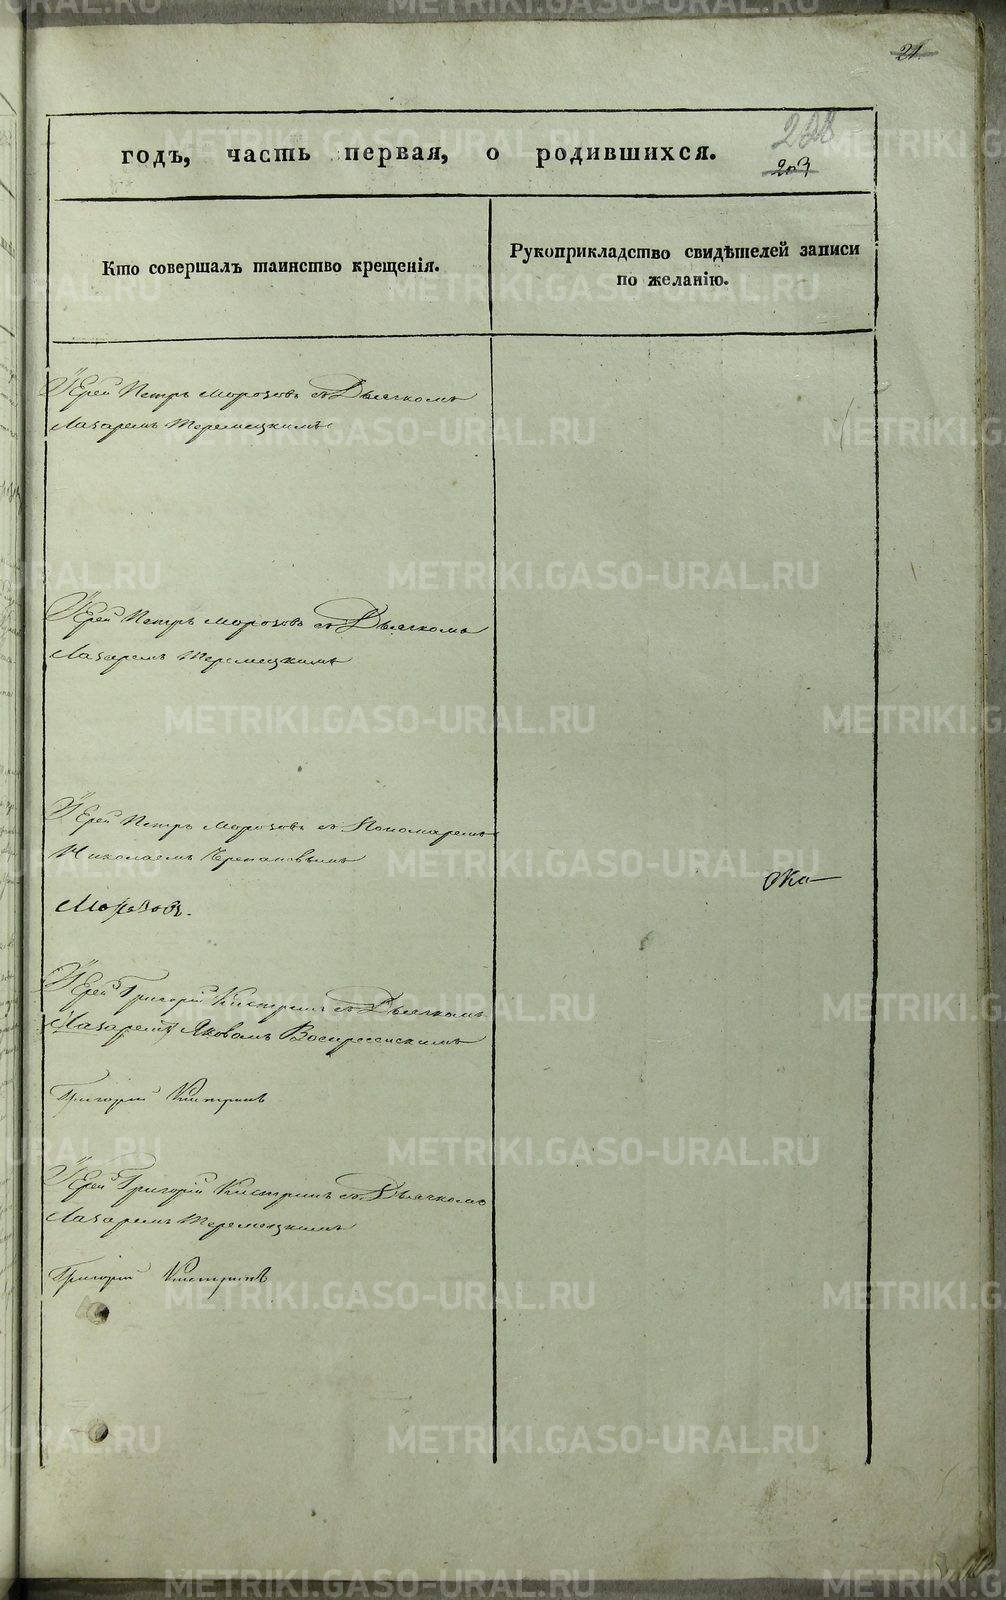 21.
228
годъ, часть первая, о родившихся.
203
Кто совершалъ таинство крещенія.
Рукоприкладство свидѣтелей записи
по желанію.
Іерей Петръ Морозовъ съ Дьячкомъ
Лазаремъ Теремецкимъ
Іерей Петръ Морозовъ съ Дьячкомъ
Лазаремъ Теремецкимъ
Іерей Петръ Морозовъ съ Пономаремъ
Николаемъ Черепановымъ
Морозовъ.
Іерей Григорій съ Дьячкомъ
Яковомъ Воскресенскимъ
Григорій
Іерей Григорій съ Дьячкомъ
Лазаремъ Теремецкимъ
Григорій
METRIKI.GASO-URAL.RU